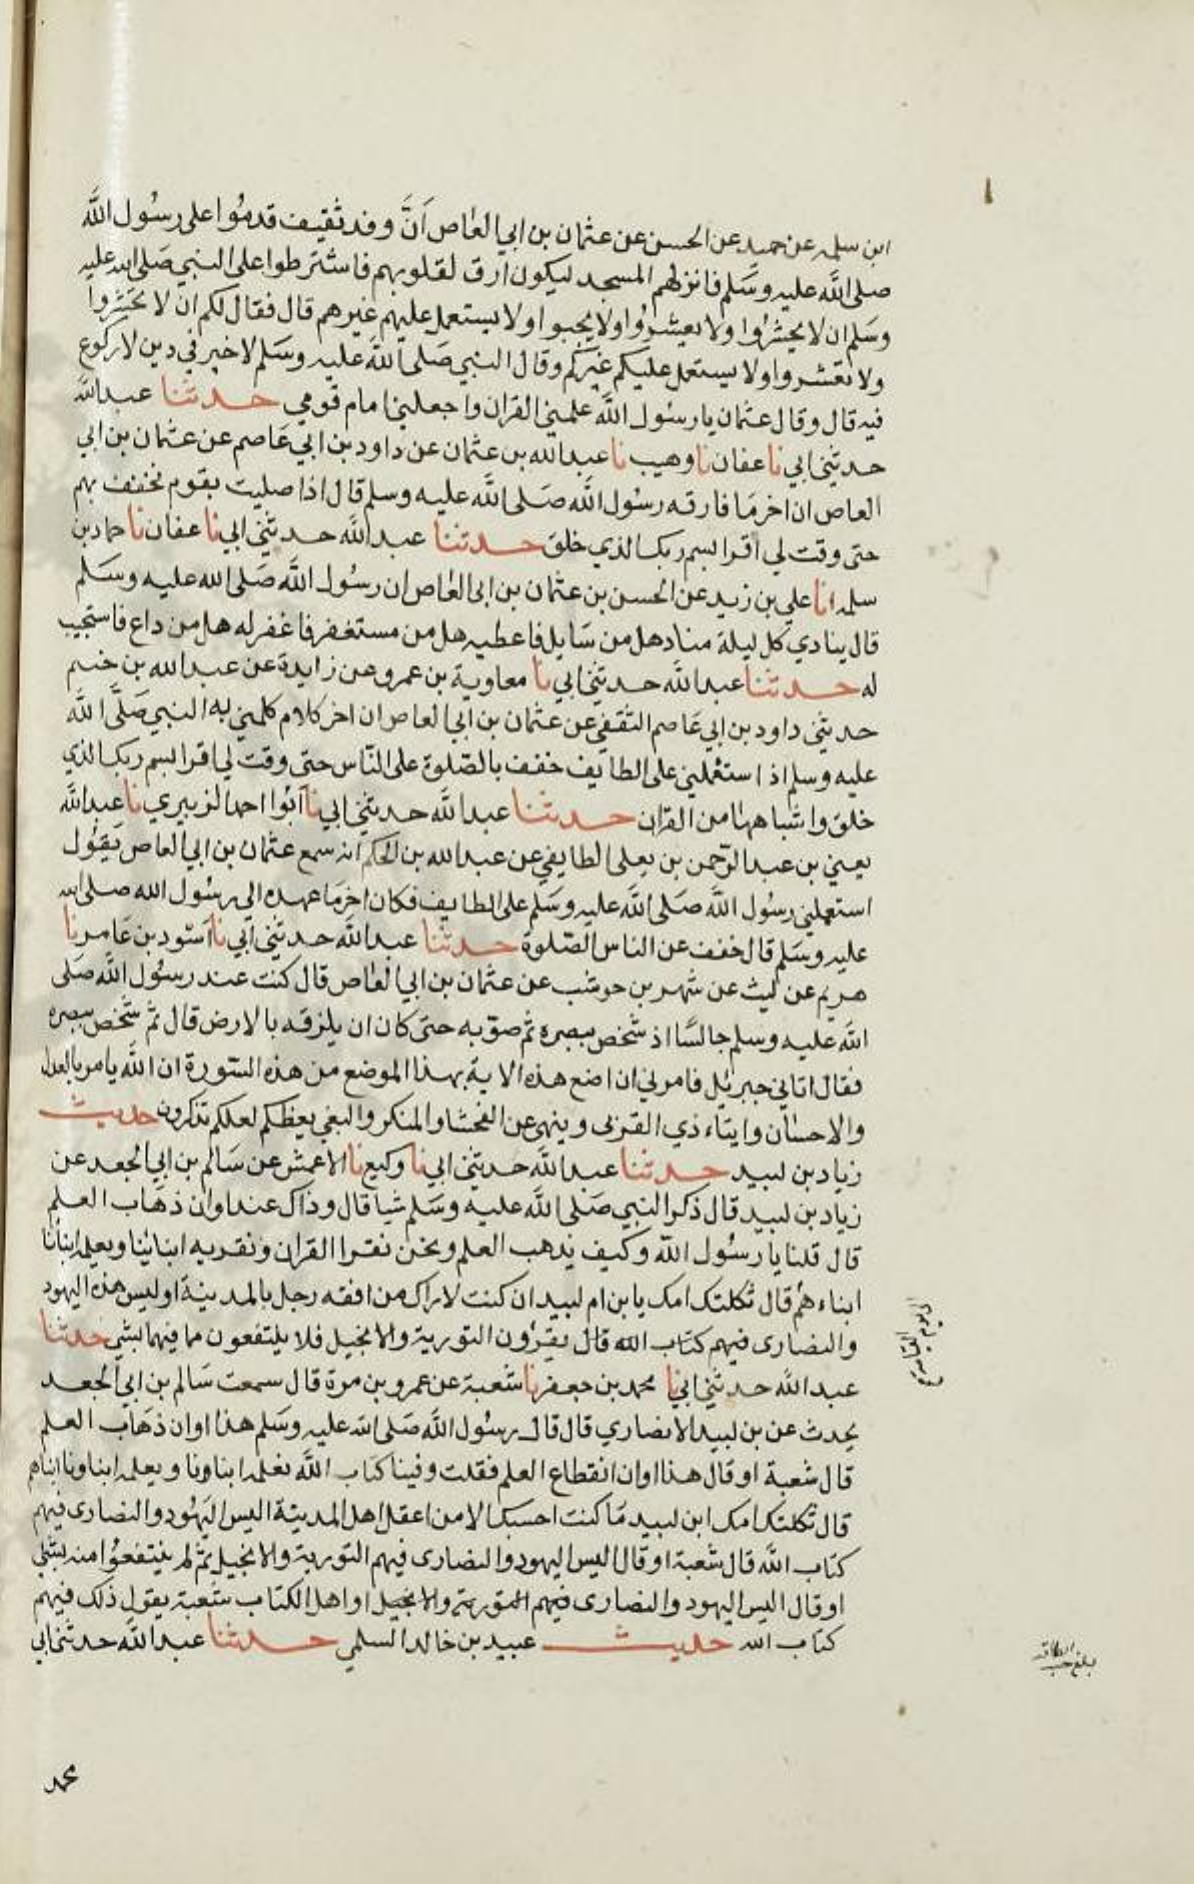 ابن سلمه عن حميد عن الحسن عن عثمان بن ابي العاص اَنَّ وفد ثقيف قدمُوا على رسُول اللَّه
صلى اللَّه عليه وسَلم فانزلهم المسجد ليكون ارق لقلوبهم فاشترطوا على النبي صَلى الله عليه
وسَلم ان لا يحشرُوا ولا يعشرُوا ولا يجبوا ولا يستعمل عليهم غيرهم قال فقال لكم ان لا تحشروا
ولا تعشروا ولا يستعمل عليكم غيركم وقال النبي صَلى اللَّه عليه وسَلم لا خير في دين لا ركوع
فيه قال وقال عثمان يا رسُول اللَّه علمني القران واجعلني امام قومي حدثنا عبد اللَّه
حدثني ابي نا عفان نا وهيب نا عبد الله بن عثمان عن داود بن ابي عَاصم عن عثمان بن ابي
العاص ان اخر مَا فارقه رسُول اللَّه صَلى اللَّه عليه وسلم قال اذا صليت بقوم فخفف بهم
حتى وقت لي اقرا بسم ربك الذي خلق حدثنا عبد اللَّه حدثني ابي نا عفان نا حماد بن
سلمه انا علي بن زيد عن الحسن بن عثمان بن ابى العاص ان رسُول اللَّه صَلى الله عليه وسَلم
قال ينادي كل ليلة مناد هل من سَايل فاعطيه هل من مستغفر فاغفر له هل من داع فاستجيب
له حدثنا عبد اللَّه حدثني ابي نا معاوية بن عمرو عن زايدة عن عبد الله بن خثيم
حدثني داود بن ابي عَاصم الثقفي عن عثمان بن ابي العاص ان اخر كلام كلمني به النبي صَلَّى اللَّه
عليه وسلم اذ استعملني على الطايف خفف بالصّلوة على النّاس حتى وقت لي اقرا بسم ربك الذي
خلق واشباهها من القران حدثنا عبد اللَّه حدثني ابي نا اَبُوا احمد الزبيري نا عبد اللَّه
يعني بن عبد الرّحمن بن يعلى الطايفي عن عبد الله بن الحكم انه سمع عثمان بن ابي العاص يَقوُل
استعملني رسُول اللَّه صَلى اللَّه عليه وسَلم على الطايف فكان اخر مَا عهده الي رسُول الله صلى الله
عليه وسَلم قال خفف عن الناس الصّلوة حدثنا عبد اللَّه حدثني ابي نا اَسود بن عَامر نا
هريم عن ليث عن شهر بن حوشب عن عثمان بن ابي العاص قال كنت عند رسُول اللَّه صَلى
اللَّه عليه وسلم جالسًا اذ شخص ببصره ثم صوّبه حتى كان ان يلزقه بالارض قال ثم شخص ببصره
فقال اتاني جبرئيل فامرني ان اضع هذه الاية بهذا الموضع من هذه السّورة ان اللَّه يامر بالعدل
والاحسان وايتاء ذي القربى وينهى عن الفحشا والمنكر والبغي يعظكم لعلكم تذكرون حديث
زياد بن لبيد حدثنا عبد اللَّه حدثني ابي نا وكيع نا الاعمش عن سَالم بن ابي الجعد عن
زياد بن لبيد قال ذكر النبي صَلى اللَّه عليه وسَلم شيا قال وذاك عند اوان ذهَاب العلم
قال قلنا يا رسُول اللَّه وكيف يذهب العلم ونحن نقرا القران ونقريه ابنائنا ويعلم ابناَنا
ابناءهُم قال ثكلتك امك يا بن ام لبيد ان كنت لاراك من افقه رجل بالمدينة اوليس هذه اليهود
والنصارى فيهم كتاب الله قال يقرؤن التورية والانجيل فلا ينتفعون مما فيهما بشي حدثنا
عبد اللَّه حدثني ابي نا محمد بن جعفر نا شعبة عن عمرو بن مرة قال سمعت سَالم بن ابي الجعد
يحدث عن بن لبيد الانصاري قال قال رسُول اللَّه صَلى الله عليه وسَلم هذا اوان ذهَاب العلم
قال شعبة او قال هذا اوان انقطاع العلم فقلت وفينا كتاب اللَّه نعلمه ابناونا ويعلمه ابناونا ابناهم
قال ثكلتك امك ابن لبيد مَا كنت احسبك الا من اعقل اهل المدينة اليس اليَهُود والنصارى فيهم
كتاب اللَّه قال شعبة او قال اليس اليهود والنصارى فيهم التورية والانجيل ثم لم ينتفعوُا منه بشئ
او قال اليس اليهود والنصارى فيهم التورية والانجيل او اهل الكتاب شعبة يقول ذلك فيهم
كتاب الله حديث عبيد بن خالد السلمي حدثنا عبد اللَّه حدثني ابي
محمد